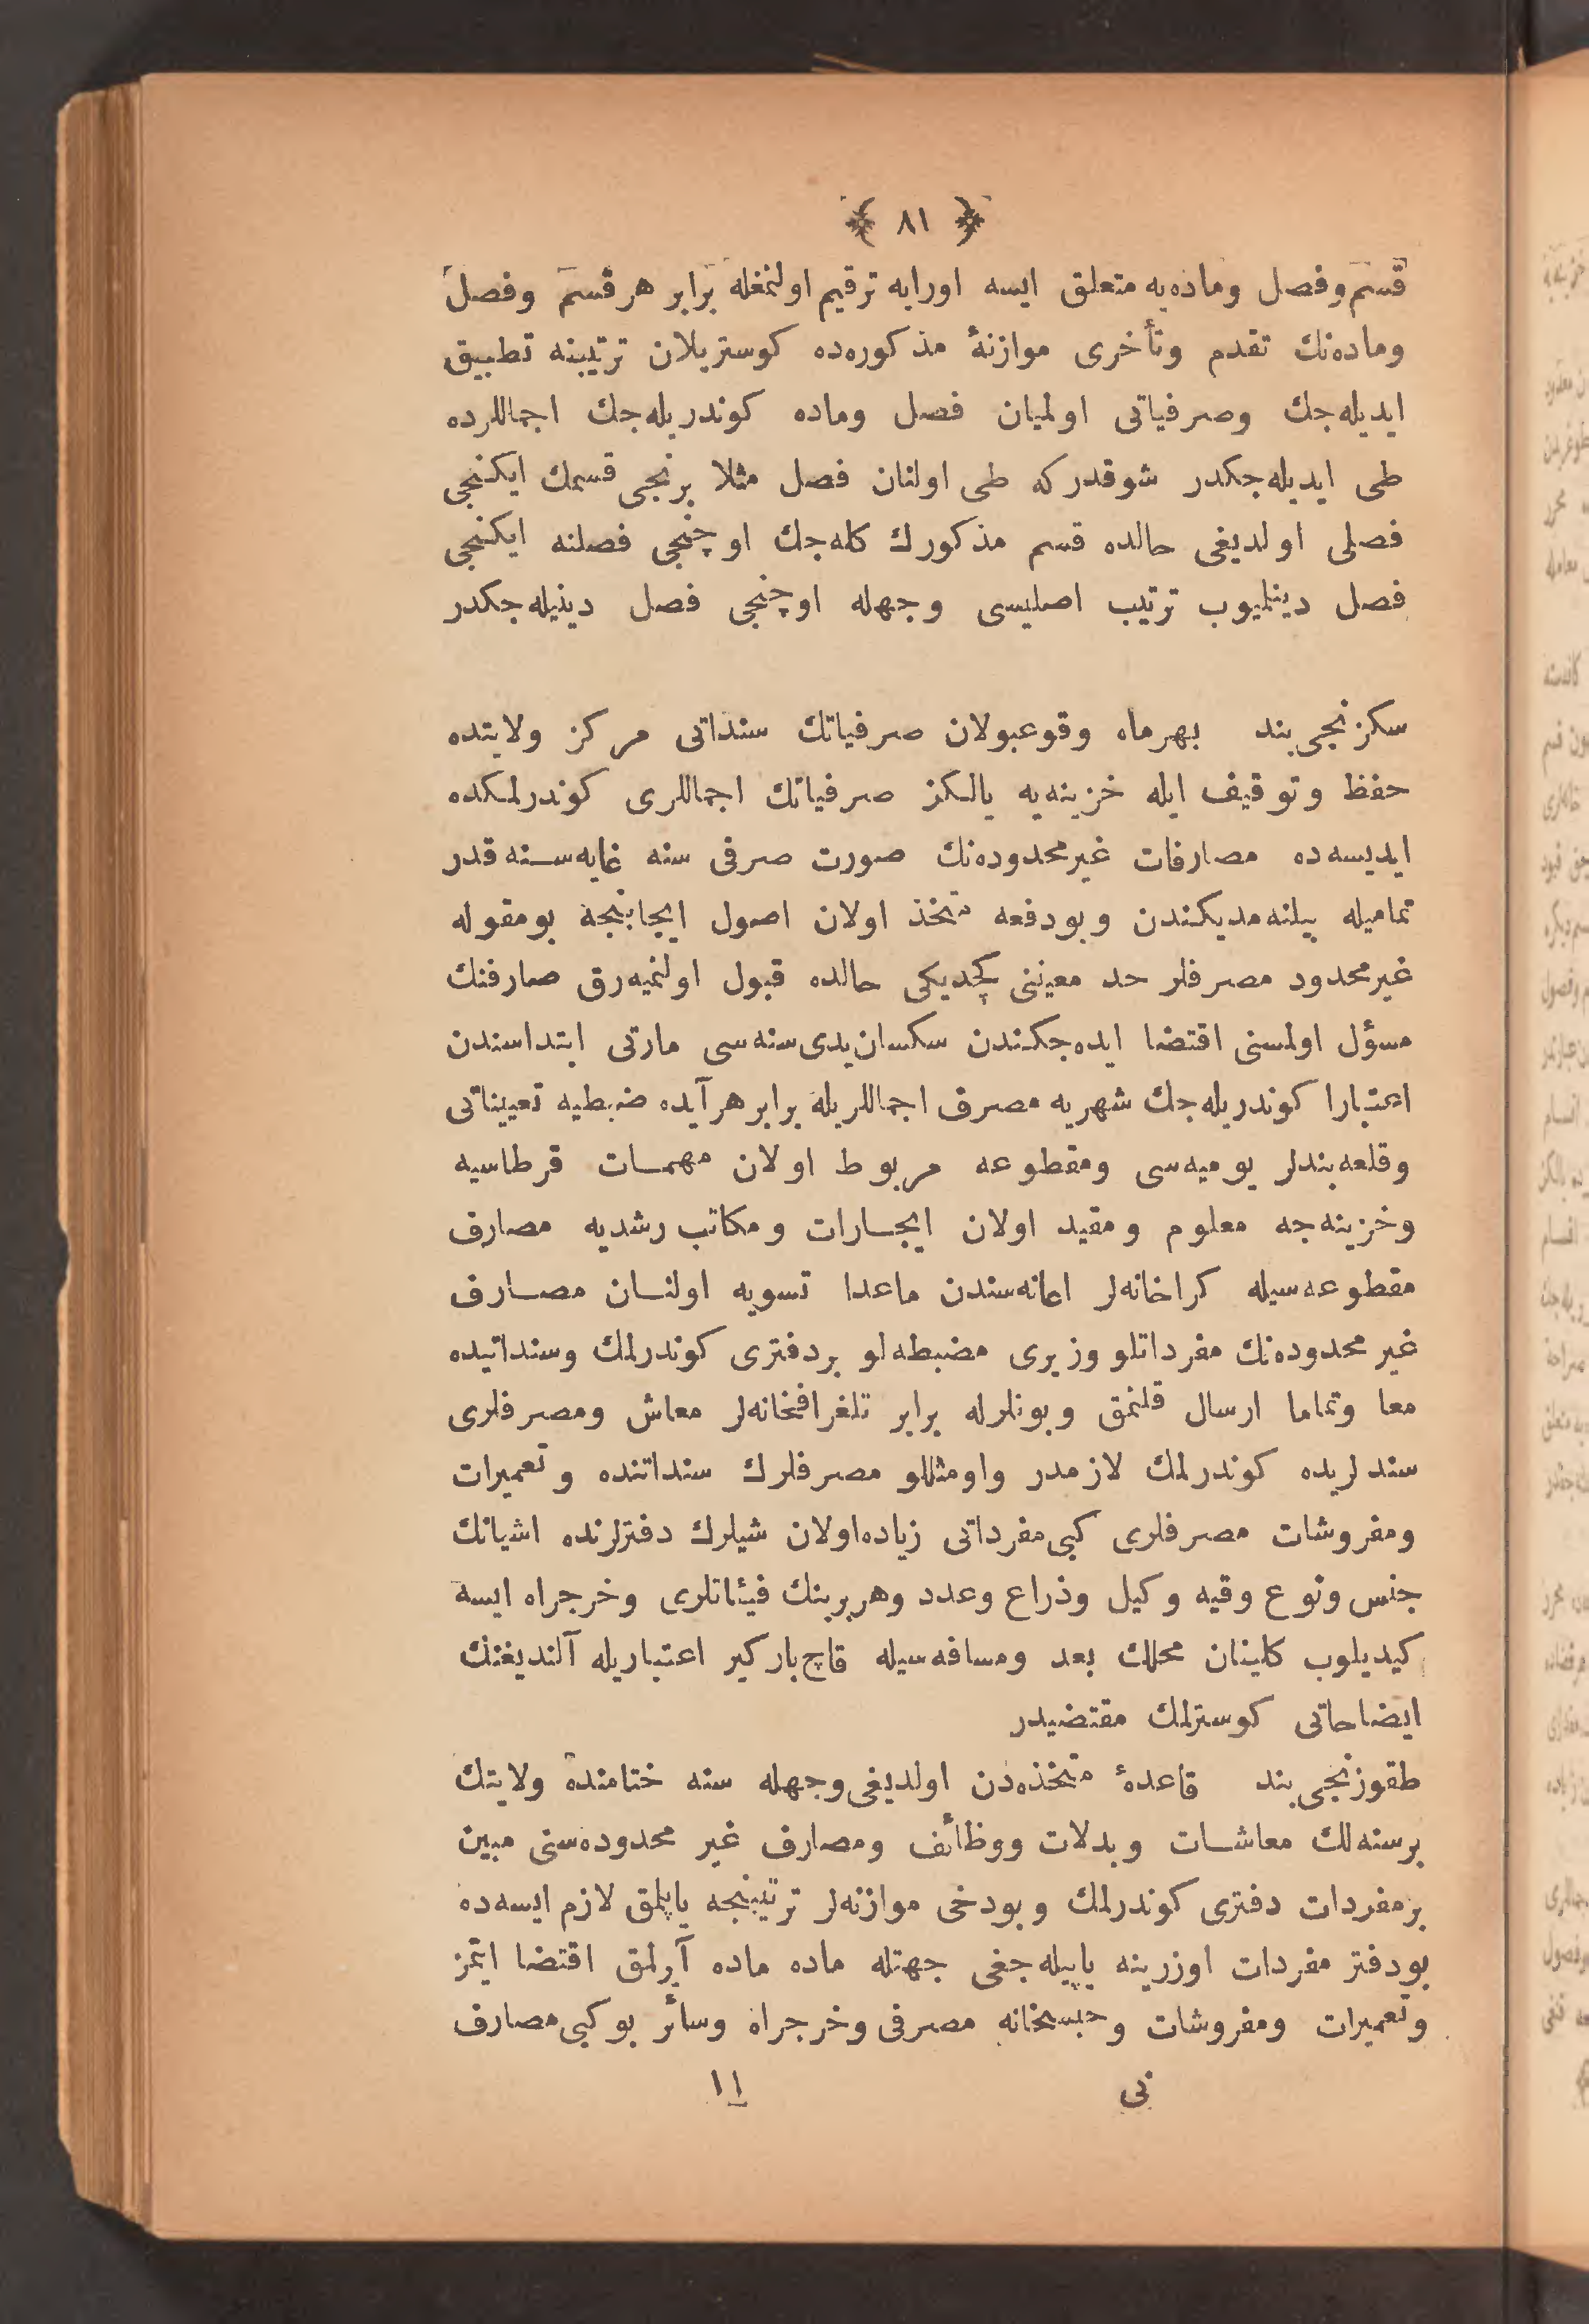 ﴿ ٨١ ﴾
قسم وفصل وماده‌یه متعلق ایسه اورایه ترقیم اولنمغله برابر هر قسم وفصل
وماده‌نك تقدم وتأخری موازنهٔ مذكوره‌ده كوستریلان ترتیبنه تطبیق
ایدیله‌جك وصرفیاتی اولمیان فصل وماده كوندریله‌جك اجماللرده
طی ایدیله‌جكدر شوقدركه طی اولنان فصل مثلا برنجی قسمك ایكنجی
فصلی اولدیغی حالده قسم مذكورك كله‌جك اوچنجی فصلنه ایكنجی
فصل دینلمیوب ترتیب اصلیسی وجهله اوچنجی فصل دینیله‌جكدر
سكزنجی بند بهرماه وقوعبولان صرفیاتك سنداتی مركز ولایتده
حفظ وتوقیف ایله خزینه‌یه یالكز صرفیاتك اجماللری كوندرلمكده
ایدیسه‌ده مصارفات غیرمحدوده‌نك صورت صرفی سنه غایه‌سنه قدر
تمامیله بیلنه‌مدیكندن وبودفعه متخذ اولان اصول ایجابنجه بومقوله
غیرمحدود مصرفلر حد معیننی كچدیكی حالده قبول اولنمیه‌رق صارفنك
مسؤل اولمسنی اقتضا ایده‌جكندن سكسان‌یدی سنه‌سی مارتی ابتداسندن
اعتبارا كوندریله‌جك شهریه مصرف اجماللریله برابر هرآیده ضبطیه تعییناتی
وقلعه‌بندلر یومیه‌سی ومقطوعه مربوط اولان مهمات قرطاسیه
وخزینه‌جه معلوم ومقید اولان ایجارات ومكاتب رشدیه مصارف
مقطوعه‌سیله كراخانه‌لر اعانه‌سندن ماعدا تسویه اولنان مصارف
غیر محدوده‌نك مفرداتلو وزیری مضبطه‌لو بردفتری كوندرلمك وسنداتیده
معا وتماما ارسال قلنمق وبونلرله برابر تلغرافخانه‌لر معاش ومصرفلری
سندلریده كوندرلمك لازمدر واومثللو مصرفلرك سنداتنده وتعمیرات
ومفروشات مصرفلری كبی مفرداتی زیاده‌اولان شیلرك دفترلرنده اشیانك
جنس ونوع وقیه وكیل وذراع وعدد وهربرینك فیئاتلری وخرجراه ایسه
كیدیلوب كلینان محللك بعد ومسافه‌سیله قاچ‌باركیر اعتباریله آلندیغنك
ایضاحاتی كوسترلمك مقتضیدر
طقوزنجی بند قاعدهٔ متخذه‌دن اولدیغی وجهله سنه ختامنده ولایتك
برسنه‌لك معاشات وبدلات ووظائف ومصارف غیر محدوده‌سنی مبین
برمفردات دفتری كوندرلمك وبودخی موازنه‌لر ترتیبنجه یاپلمق لازم ایسه‌ده
بودفتر مفردات اوزرینه یاپیله‌جغی جهتله ماده ماده آیرلمق اقتضا ایتمز
وتعمیرات ومفروشات وحبسخانه مصرفی وخرجراه وسائر بوكبی مصارف
نی ١١